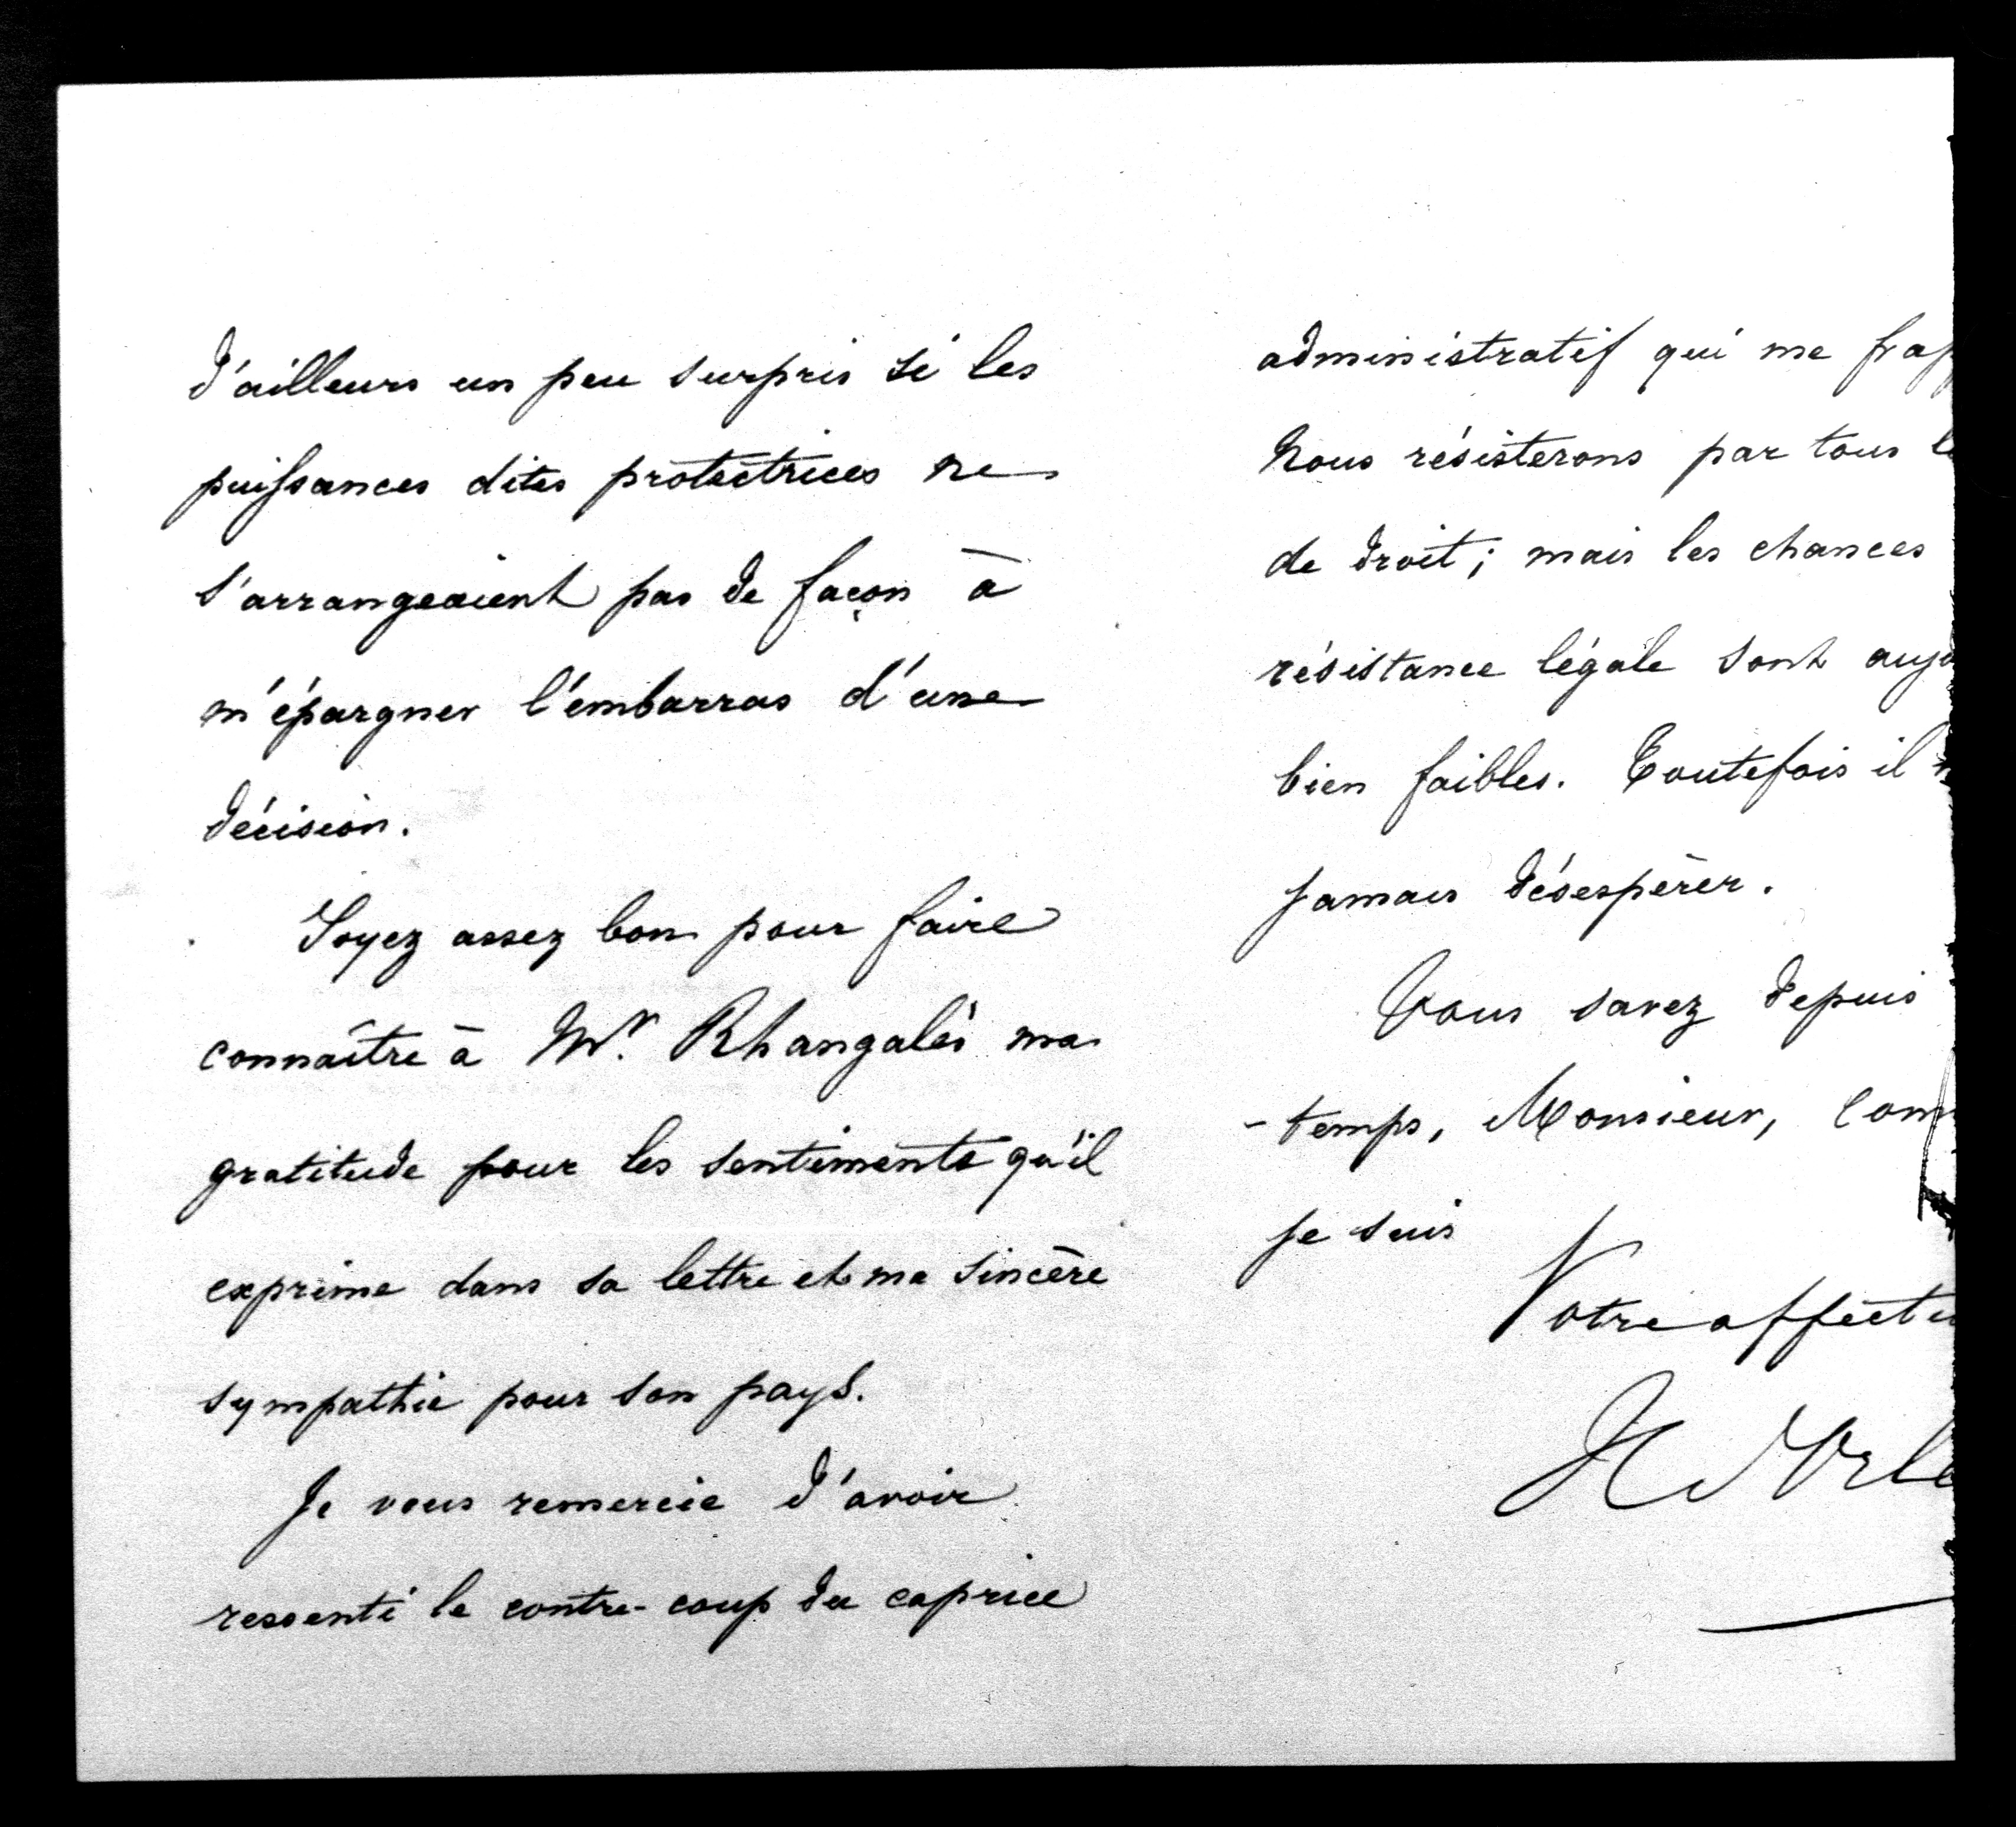 d'ailleurs un peu surpris si les
puissances dites protectrices ne
s'arrangeaient pas de façon à
m'épargner l'embarras d'une
décision.
Soyez assez bon pour faire
connaître à Mr. Rhangabé ma
gratitude pour les sentiments qu'il
exprime dans sa lettre et ma sincère
sympathie pour son pays.
Je vous remercie d'avoir
ressenti le contre-coup du caprice
administratif qui me frap
Nous résisterons par tous l
de droit; mais les chances
résistance légale sont aujo
bien faibles. Toutefois il n
jamais désespérer.
Vous savez depuis
-temps, Monsieur, com
je suis
Votre affectu
H d'Orle